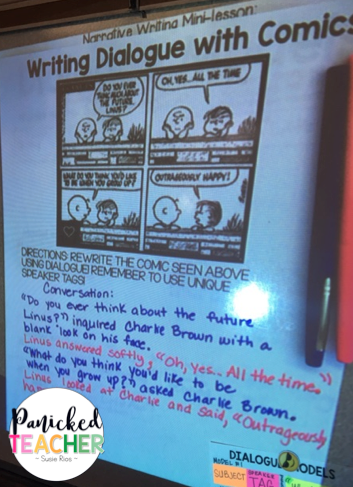 Narrative Writing Mini-lesson:
Writing Dialogue with Comics
DO YOU EVER
THINK MUCH ABOUT
THE FUTURE,
LINUS?
OH, YES...ALL THE TIME
WHAT DO YOU THINK YOU'D LIKE
TO BE WHEN YOU GROW UP?
OUTRAGEOUSLY HAPPY!
DIRECTIONS: REWRITE THE COMIC SEEN ABOVE
USING DIALOGUE REMEMBER TO USE UNIQUE
SPEAKER TAGS!
Conversation:
"Do you ever think about the future
Linus?" inquired Charlie Brown with a
blank look on his face.
Linus answered softly, "Oh, yes.. All the time."
"What do you think you'd like to be
when you grow up?" asked Charlie Brown.
Linus looked at Charlie and said, "Outrageously
Panicked
TEACHER
- Susie Rios -
DIALOGUE MODELS
MODEL #1
SUBJECT
SPEAKER
TAG